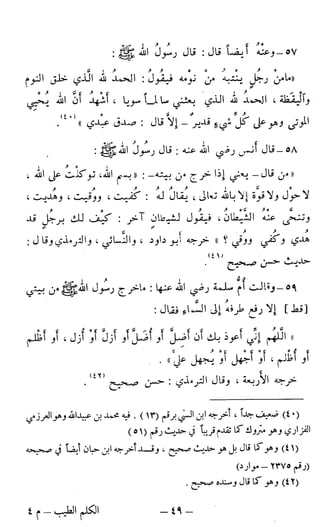 ٥٧ ـ وعنْهُ أيضاً قال: قال رسُولُ الله ﷺ:
«مامنْ رجُلٍ ينتبهُ منْ نوْمه فيقُولُ: الحمدُ لله الَّذي خلق النوم
واليقظة، الحمدُ لله الذي بعثني سالماً سويا، أشهدُ أنَّ الله يُحْيي
الموتى وهو على كُلِّ شيءٍ قديرٌ ـ إلاَّ قال: صدق عبْدي»(٤٠).
٥٨ ـ قال أنس رضي الله عنه: قال رسُول الله ﷺ:
«من قال ـ يعني إذا خرج من بيته ـ: بسم الله، توكلْتُ على الله،
لاحوْل ولاقوَّة إلابالله تعالى، يُقالُ لهُ: كُفيت، ووُقيت، وهُديت،
وتنحَّى عنْهُ الشَّيْطانُ، فيقُول لشيْطانٍ آخر: كيْف لك برجُلٍ قد
هُدي وكُفي ووُقي؟» خرجه أبو داود، والنَّسائي، والترمذي وقال:
حديث حسن صحيح(٤١).
٥٩ ـ وقالت أُمُّ سلمة رضي الله عنها: ماخرج رسُول الله ﷺ من بيتي
[قط] إلا رفع طرفهُ إلى السَّماء فقال:
«اللَّهُم إنِّي أعوذ بك أن أضلَّ أو أُضلَّ أو أزلَّ أوْ أُزل، أو أظلم
أو أُظلم، أوْ أجْهل أو يُجهل عليَّ».
خرجه الأربعة، وقال الترمذي: حسن صحيح(٤٢).
(٤٠) ضعيف جداً، أخرجه ابن السني برقم (١٣). فيه محمد بن عبيدالله وهو العرزمي
الفزاري وهو متروك كما تقدم قريباً في حديث رقم (٥١)
(٤١) وهو كما قال بل هو حديث صحيح، وقد أخرجه ابن حبان أيضاً في صحيحه
(رقم ٢٣٧٥ ـ موارد)
(٤٢) وهو كما قال وسنده صحيح.
ـ ٤٩ ـ
الكلم الطيب ـ م ٤